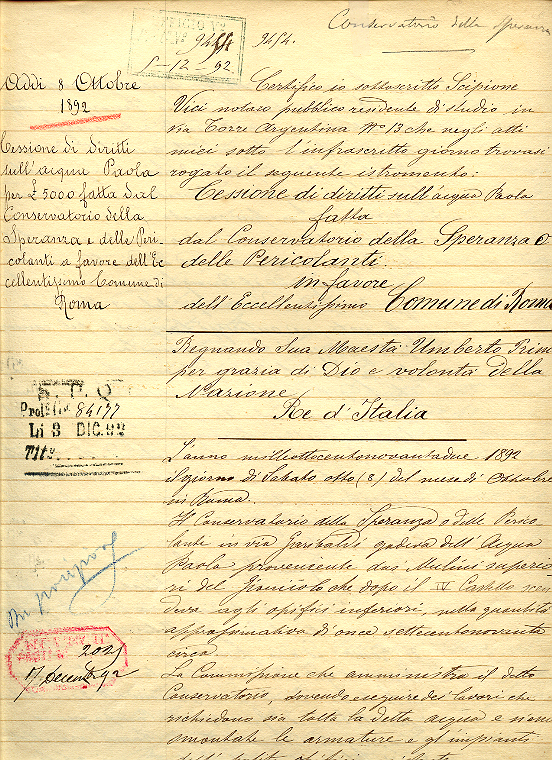 Conservatorio della Speranza
9454 9454.
5-12-92
Addì 8 Ottobre
1892
Cessione di diritti
sull'acqua Paola
per £ 5000 fatta dal
Conservatorio della
Speranza e delle Peri-
colanti a favore dell'Ec
cellentissimo Comune di
Roma
Certifico io sottoscritto Scipione
Vici notaro pubblico residente di studio in
via Torre Argentina No 13 che negli atti
miei sotto l'infrascritto giorno trovasi
rogato il seguente istromento:
Cessione di diritti sull'acqua Paola
fatta
dal Conservatorio della Speranza o
delle Pericolanti
in favore
dell'Eccellentissimo Comune di Roma
Regnando Sua Maestà Umberto Primo
per grazia di Dio e volontà della
Nazione
Re d'Italia
L'anno milleottocentonovantadue 1892
il giorno di Sabato otto (8) del mese di Ottobre
in Roma.
Il Conservatorio della Speranza o delle Perico
lante in via Garibaldi godeva dell'Acqua
Paola proveniente dai Mulini superio
ri del Gianicolo che dopo il IV Castello scen
deva agli opifici inferiori, nella quantità
approssimativa di oncie settecentonovanta
circa.
La Commissione che amministra il detto
Conservatorio, dovendo eseguire dei lavori che
richiedono sia tolta la detta acqua e siano
smontate le armature e gl'impianti
Prot. No 84177
Li 3 DIC. 92
Tit.
2025
17 Decemb. 92